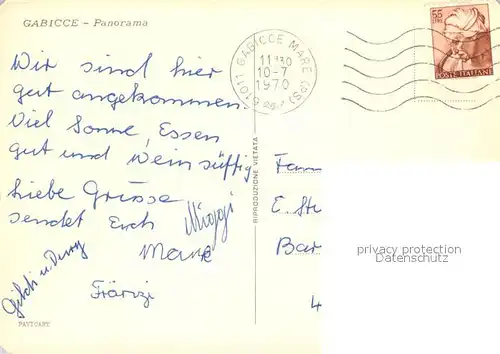 GABICCE - Panorama
Wir sind hier
gut angekommen.
Viel Sonne, Essen
gut und Wein süffig
Liebe Grüsse
sendet Euch
61011 GABICCE MARE (PS)
11-30
10-7
1970
55
LIRE
POSTE ITALIANE
RIPRODUZIONE VIETATA
Fam
E. St
Bar
4
privacy protection
Datenschutz